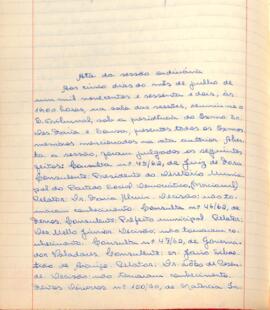 Ata da sessão ordinária
Aos cinco dias do mês de julho de
um mil novecentos e sessenta e dois, às
1400 horas, na sala das sessões, reuniu-se o
E. Tribunal, sob a presidência do Exmo Sr.
Des. Faria e Sousa, presentes todos os Exmos
membros mencionados na ata anterior. Aber-
ta a sessão, foram julgados os seguintes
feitos: Consulta nº 45/62, de Juiz de Fora
Consulente: Presidente do Diretório Munici-
pal do Partido Social Democrático,
Relator: Decisão: não to-
maram conhecimento. Consulta nº 46/62, de
Consulente: Prefeito municipal. Relator:
Des. Mello Júnior. Decisão: não tomaram co-
nhecimento. Consulta nº 47/62, de Governa-
dor Valadares. Consulente: Sr.
de Araújo. Relator: Dr.
Decisão: Não tomaram conhecimento.
Feitos Diversos nº 100/62, de